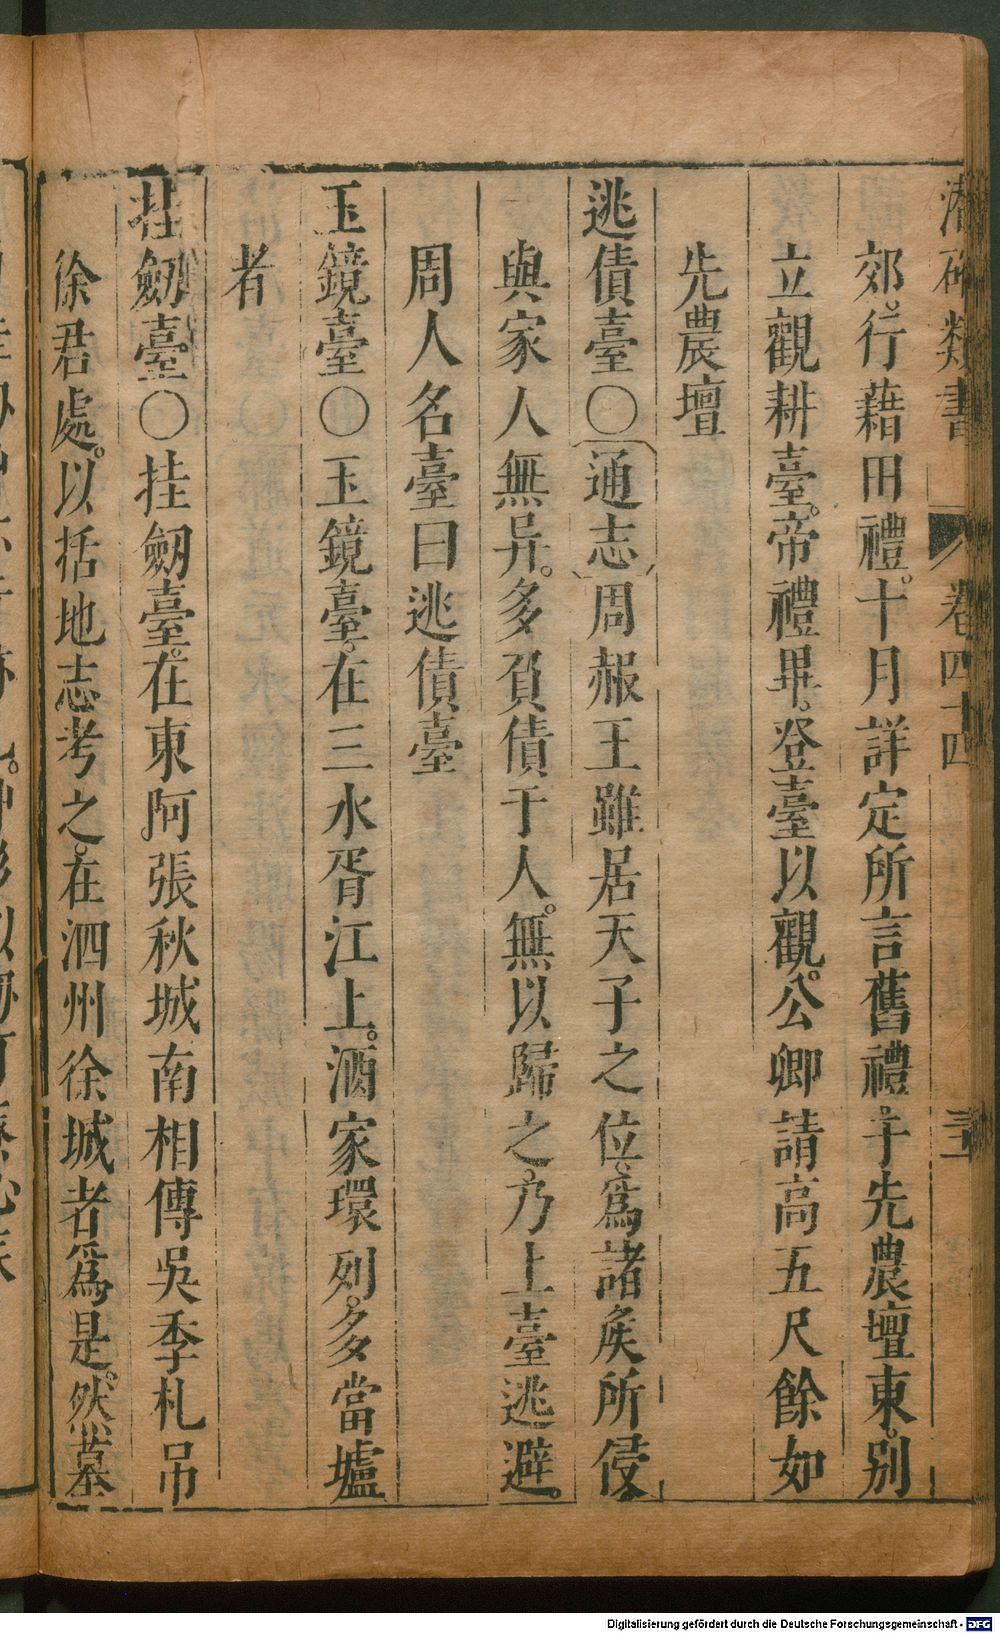 潛確類書 卷四十四 三十一
郊行藉田禮。十月詳定所言舊禮于先農壇東。別
立觀耕臺。帝禮畢。登臺以觀。公卿請高五尺餘如
先農壇
逃債臺〇通志周赧王雖居天子之位。爲諸侯所侵
與家人無异。多負債于人。無以歸之。乃上臺逃避。
周人名臺曰逃債臺
玉鏡臺〇玉鏡臺。在三水胥江上。酒家環列。多當壚
者
挂劒臺〇挂劒臺。在東阿張秋城南相傳吳季札吊
徐君處。以括地志考之。在泗州徐城者爲是。然墓
Digitalisierung gefördert durch die Deutsche Forschungsgemeinschaft - DFG